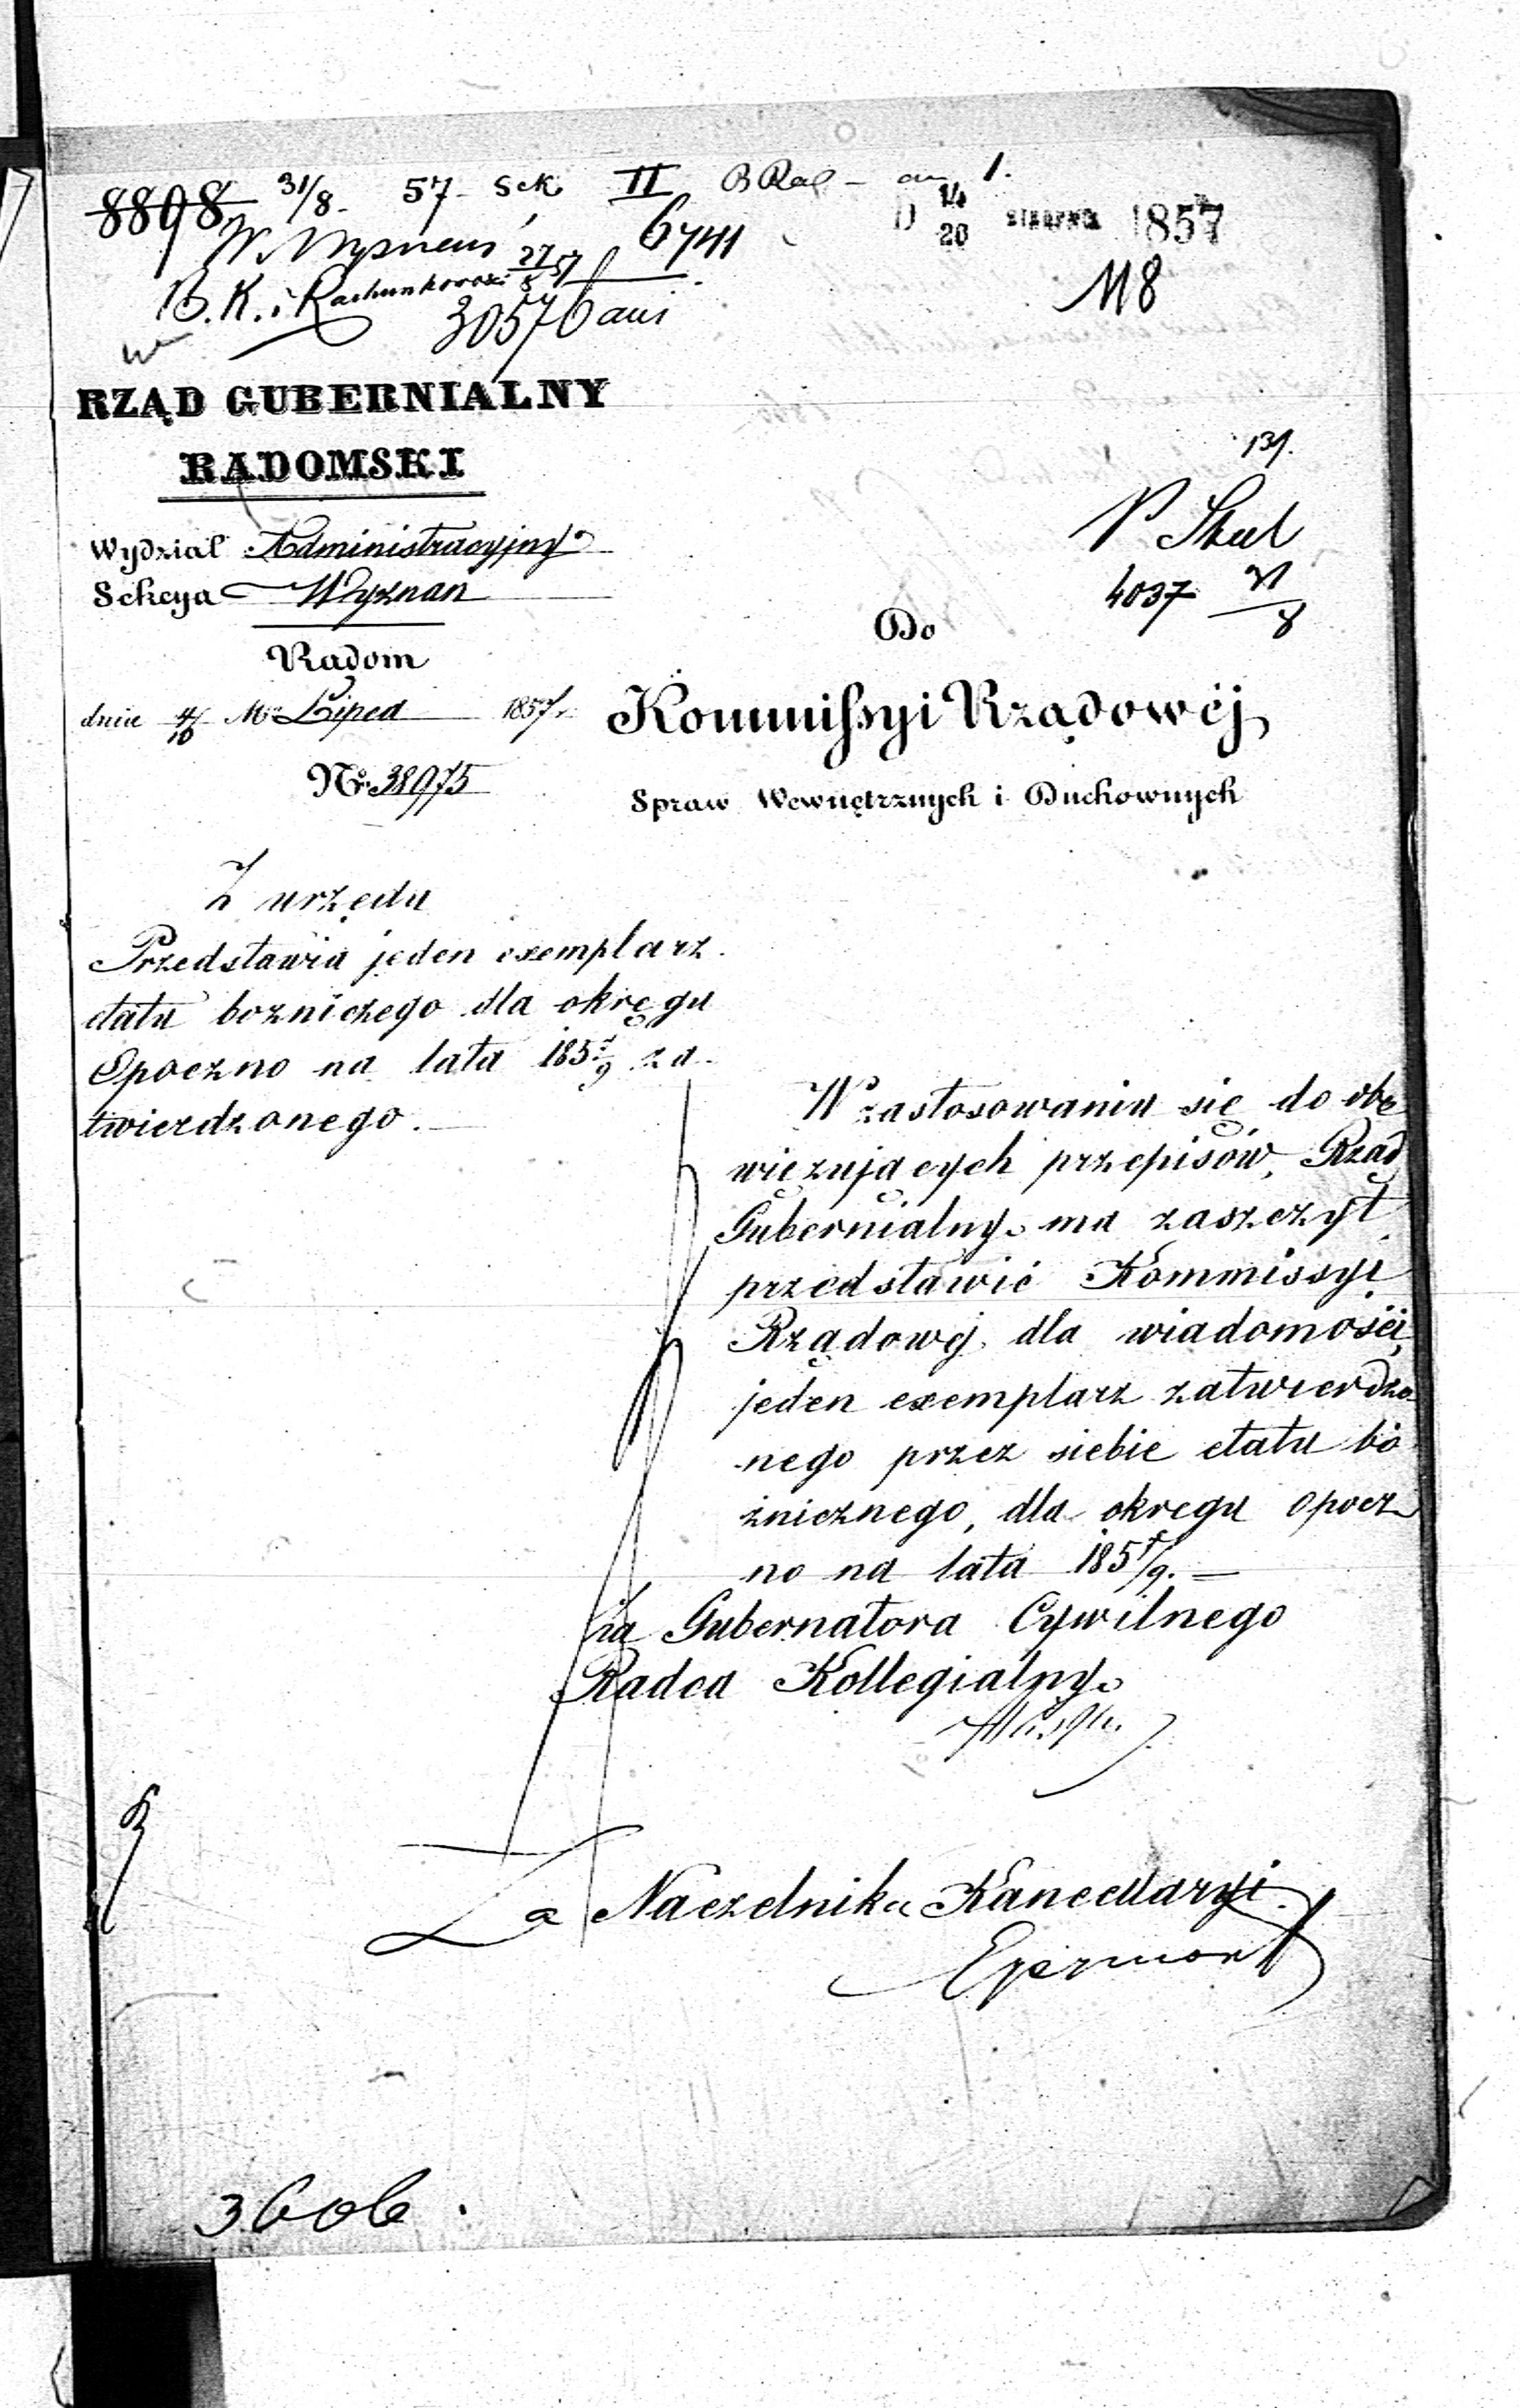 8898 31/8 57 Sek II
6741
D 14/26 SIERPNIA 1857
B. K. i Rachunkowości 27/8 57
118
30576
RZĄD GUBERNIALNY
RADOMSKI
131.
Wydział Administracyjny
4037
Sekcya Wyznań
Do
Radom
dnia 4/16 Mca Lipca 1857 r.
Kommissyi Rządowéj
No. 38975
Spraw Wewnętrznych i Duchownych
Z urzędu
Przedstawia jeden exemplarz
etatu bożniczego dla okręgu
Opoczno na lata 1857/9 za-
twierdzonego.
W zastosowaniu się do obo
więzujących przepisów, Rząd
Gubernialny ma zaszczyt
przedstawić Kommissyi
Rządowej dla wiadomości,
jeden exemplarz zatwierdzo-
nego przez siebie etatu bó
żnicznego, dla okręgu Opocz
no na lata 1857/9.
za Gubernatora Cywilnego
Radca Kollegialny
Za Naczelnika Kancellaryi
3606